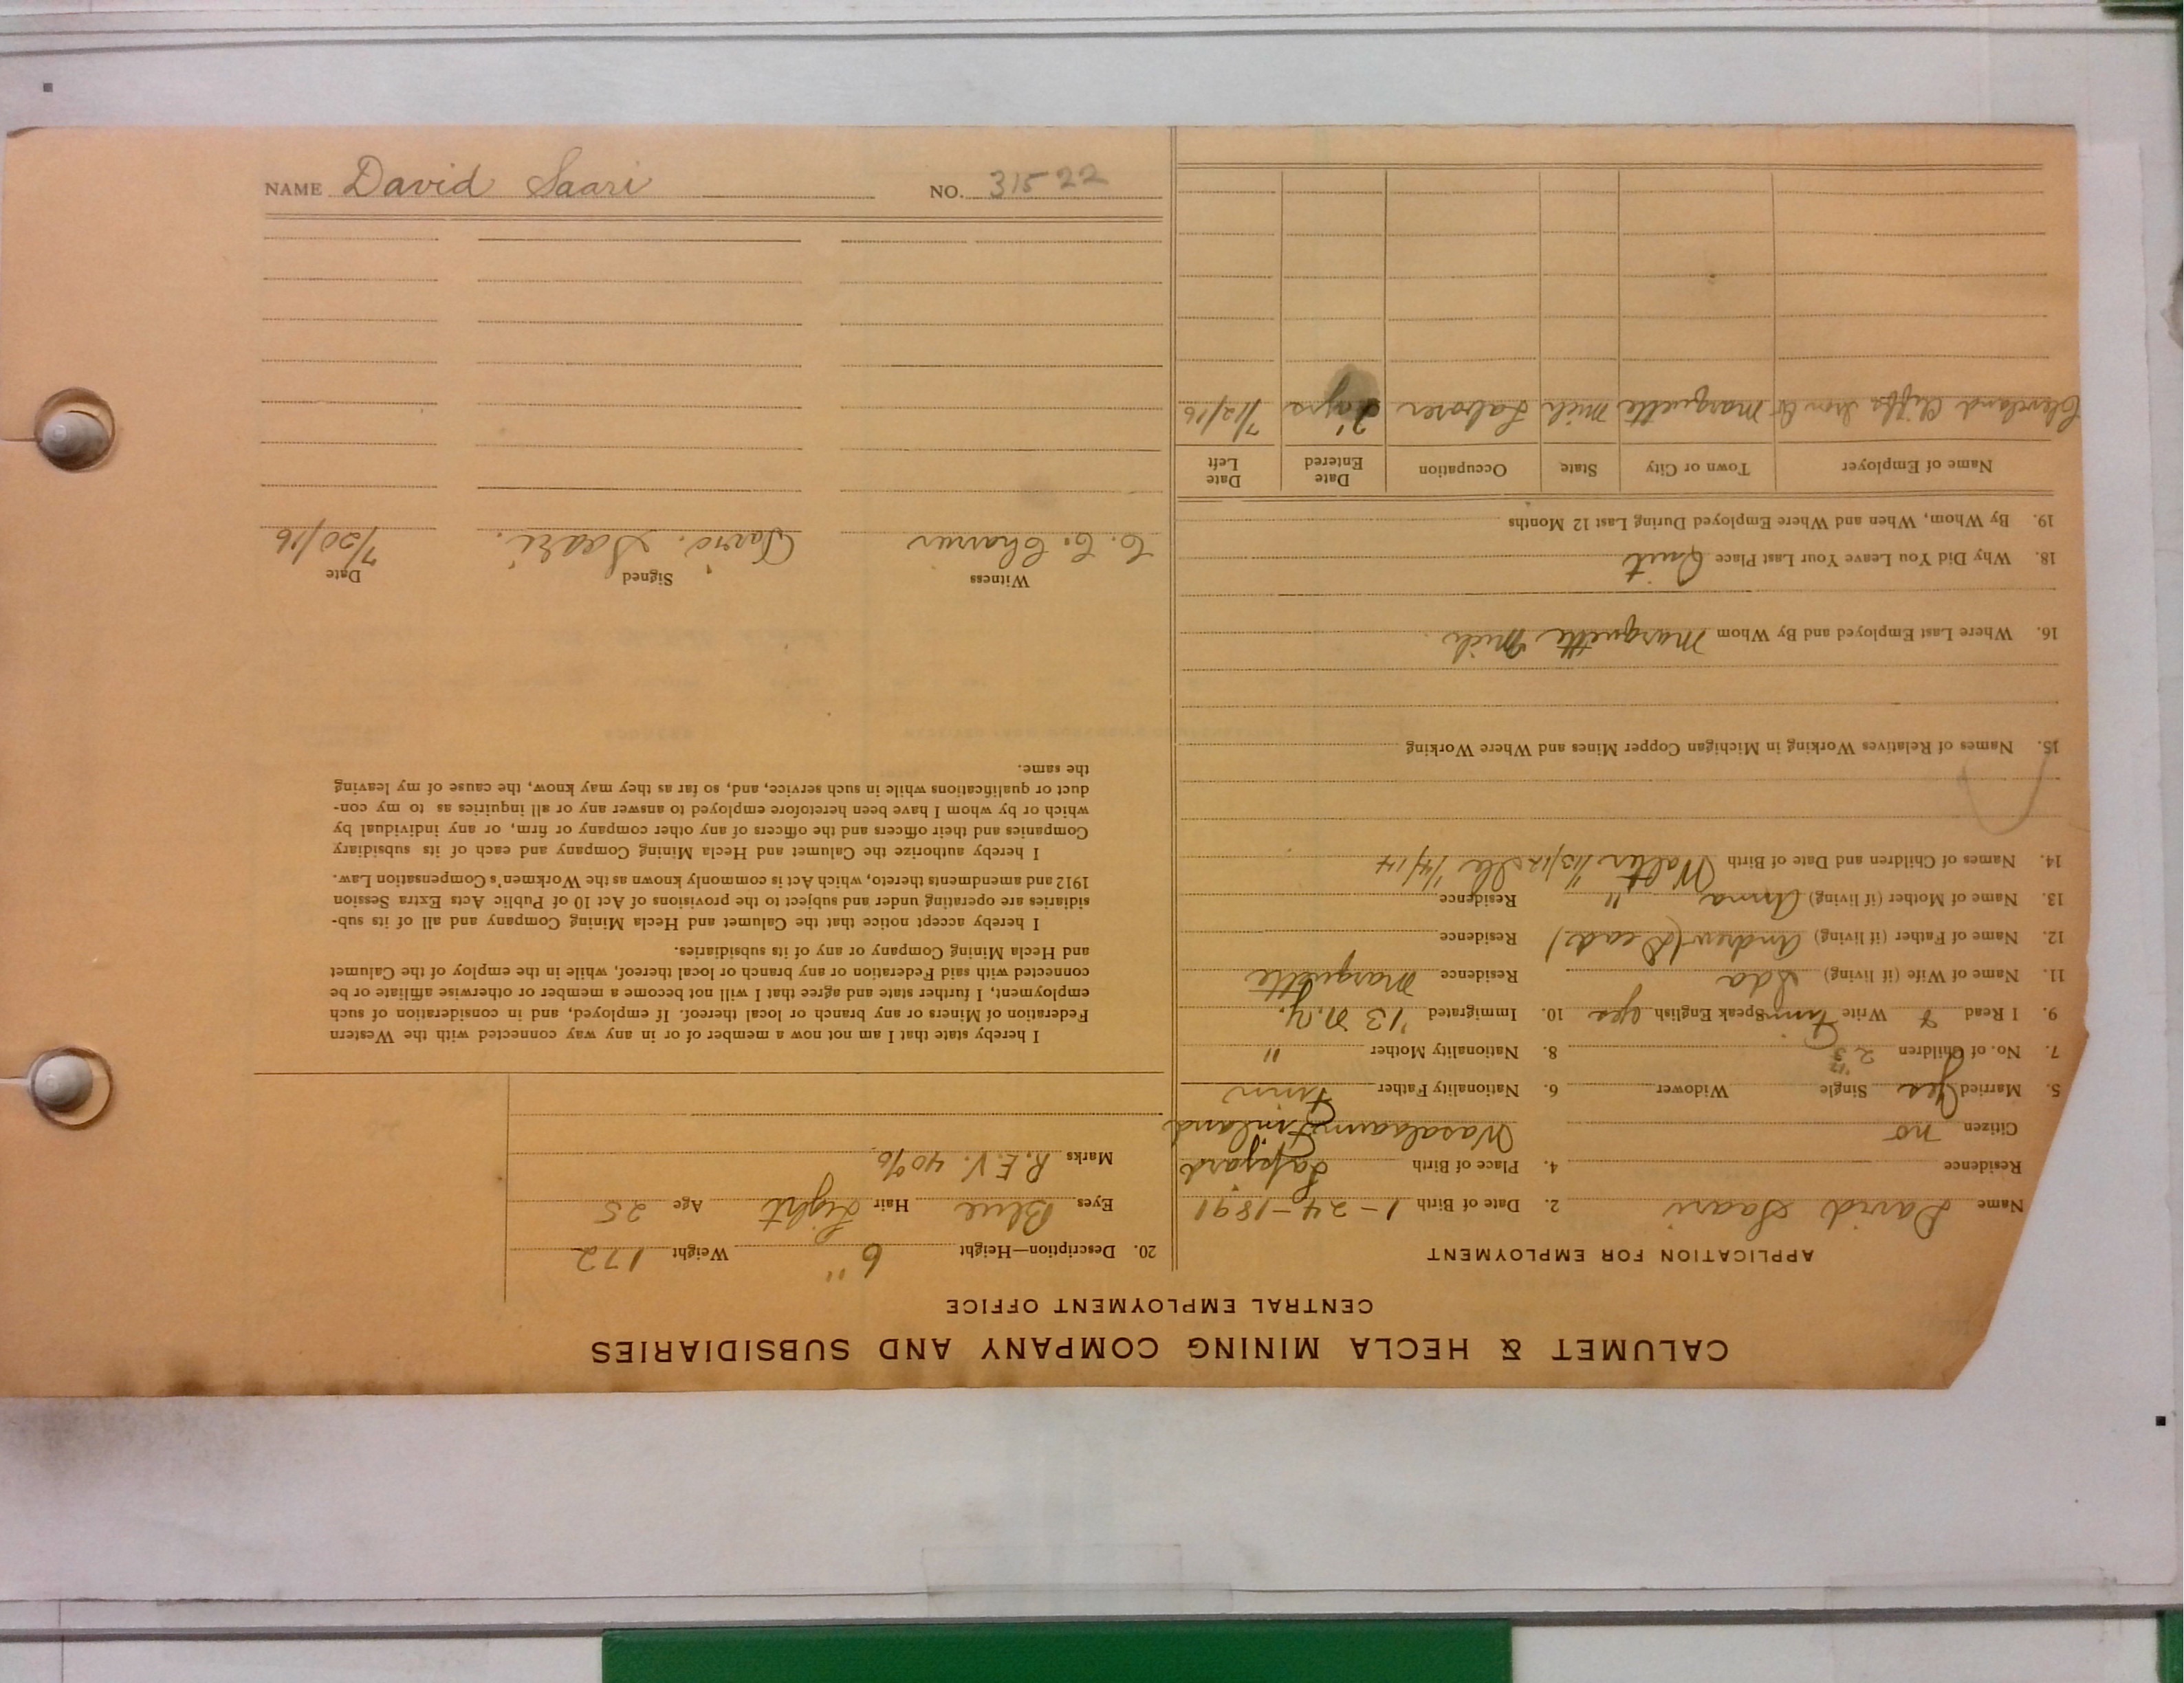 CALUMET & HECLA MINING COMPANY AND SUBSIDIARIES
CENTRAL EMPLOYMENT OFFICE
APPLICATION FOR EMPLOYMENT
Name David Saari 2. Date of Birth 1-24-1891
Residence 4. Place of Birth Lappjard
Citizen no Finland
5. Married Yes Single Widower 6. Nationality Father Finn
7. No. of Children 2 8. Nationality Mother "
9. I Read Write Finnish Speak English yes 10. Immigrated '13 N.Y.
11. Name of Wife (if living) Ida Residence Marquette
12. Name of Father (if living) Andrew (Dead) Residence
13. Name of Mother (if living) Anna " Residence
14. Names of Children and Date of Birth Walter
15. Names of Relatives Working in Michigan Copper Mines and Where Working
16. Where Last Employed and By Whom Marquette Mich
18. Why Did You Leave Your Last Place Quit
19. By Whom, When and Where Employed During Last 12 Months
Name of Employer Town or City State Occupation Date Entered Date Left
Cleveland Cliffs Iron Co Marquette Mich Laborer 2 yrs 7/12/16
20. Description—Height 6" Weight 172
Eyes Blue Hair Light Age 25
Marks R.E.V. 40%
I hereby state that I am not now a member of or in any way connected with the Western
Federation of Miners or any branch or local thereof. If employed, and in consideration of such
employment, I further state and agree that I will not become a member or otherwise affiliate or be
connected with said Federation or any branch or local thereof, while in the employ of the Calumet
and Hecla Mining Company or any of its subsidiaries.
I hereby accept notice that the Calumet and Hecla Mining Company and all of its sub-
sidiaries are operating under and subject to the provisions of Act 10 of Public Acts Extra Session
1912 and amendments thereto, which Act is commonly known as the Workmen's Compensation Law.
I hereby authorize the Calumet and Hecla Mining Company and each of its subsidiary
Companies and their officers and the officers of any other company or firm, or any individual by
which or by whom I have been heretofore employed to answer any or all inquiries as to my con-
duct or qualifications while in such service, and, so far as they may know, the cause of my leaving
the same.
Witness Signed Date
David. Saari. 7/20/16
NAME David Saari NO. 31522